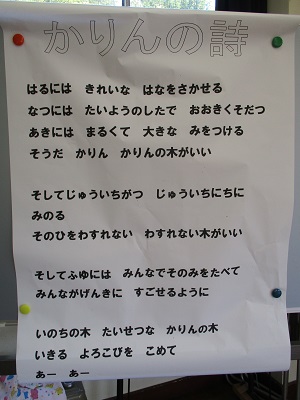 かりんの詩
はるには　きれいな　はなをさかせる
なつには　たいようのしたで　おおきくそだつ
あきには　まるくて　大きな　みをつける
そうだ　かりん　かりんの木がいい
そしてじゅういちがつ　じゅういちにちに
みのる
そのひをわすれない　わすれない木がいい
そしてふゆには　みんなでそのみをたべて
みんながげんきに　すごせるように
いのちの木　たいせつな　かりんの木
いきる　よろこびを　こめて
あー　あー